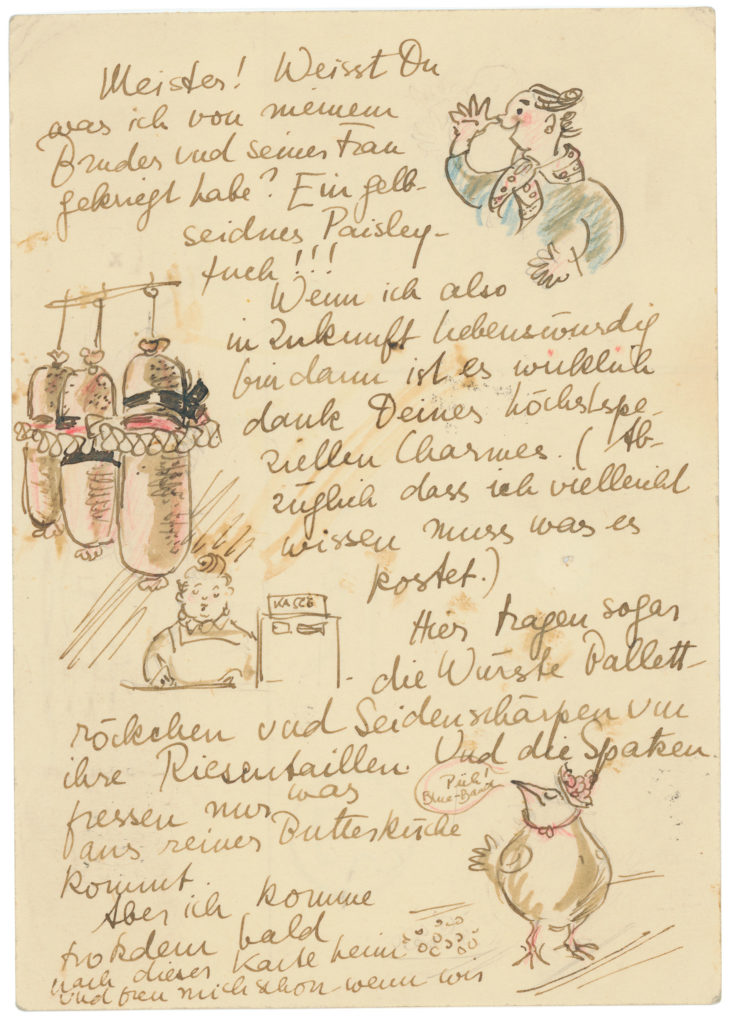 Meister! Weisst Du
was ich von meinem
Bruder und seiner Frau
gekriegt habe? Ein gelb-
seidnes Paisley-
tuch!!!
Wenn ich also
in Zukunft liebenswürdig
bin dann ist es wirklich
dank Deines höchstspe-
ziellen Charmes. (Ab-
züglich dass ich vielleicht
wissen muss was es
kostet.)
KASSE
Hier tragen sogar
die Würste Ballett-
röckchen und Seidenschärpen um
ihre Riesentaillen. Und die Spatzen
fressen nur was
aus reiner Butterküche
kommt.
Püh!
Blue-Band
Aber ich komme
trotzdem bald
nach dieser Karte heim
und freu mich schon wenn wir